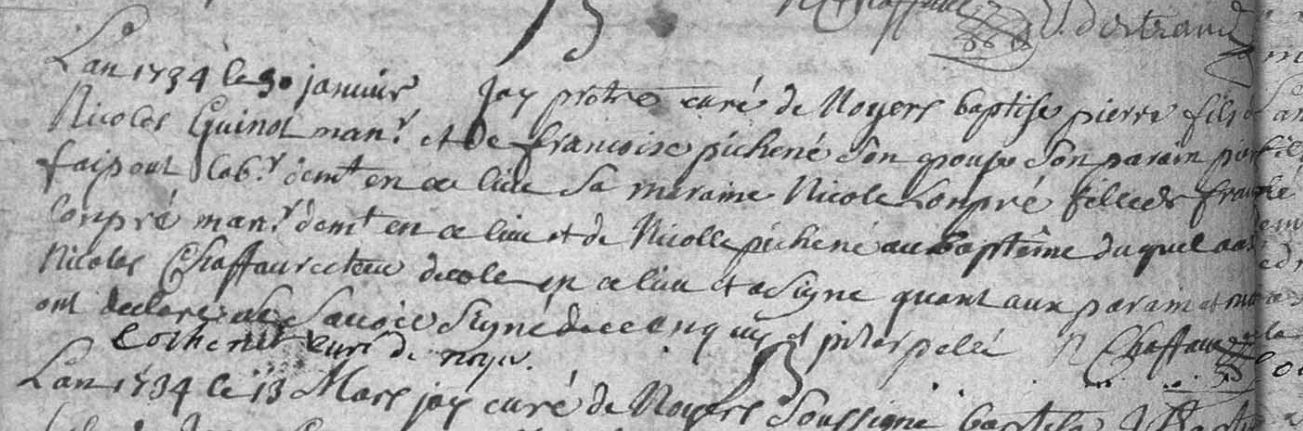 N Chaffaut J. Bertrand
Lan 1734 le 30 janvier Jay protre curé de Noyers baptise pierre fils de
Nicolas Guinot man.r et de francoise pichené Son epouse Son parain
faipout lab.r demt en ce lieu Sa maraine Nicole Conpré fille de
Conpré man.r demt en ce lieu et de Nicolle pichené au baptême duquel
Nicolas Chaffau recteur decole en ce lieu et a Signé quant aux parain et
ont declaré ne Savoir Signé de ce enquis et interpelé N Chaffaut
curé de noyer.
Lan 1734 le 13 Mars jay curé de Noyers Soussigné baptisé